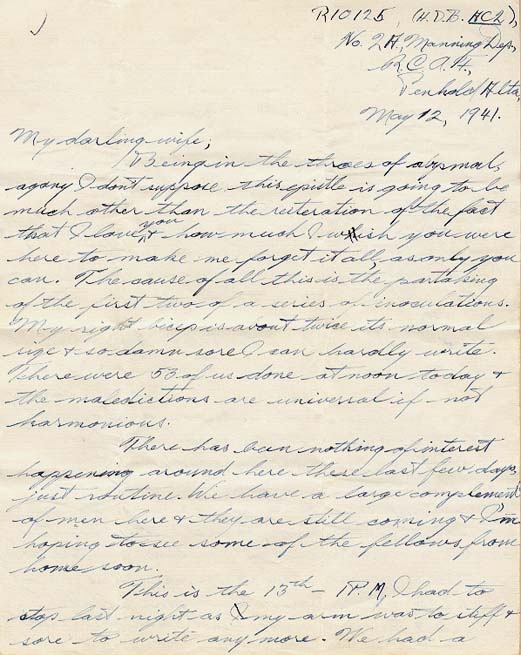 R10125, (H.D.B. ACL),
No. 2A, Manning Dep,
R.C.A.F.,
Penhold Alta,
May 12, 1941.
My darling wife;
Being in the throes of abysmal
agony I don't suppose this epistle is going to be
much other than the reiteration of the fact
that I love you & how much I wish you were
here to make me forget it all, as only you
can. The cause of all this is the partaking
of the first two of a series of inoculations.
My right bicep is about twice its normal
size & so damn sore I can hardly write.
There were 53 of us done at noon today &
the maledictions are universal if not
harmonious.
There has been nothing of interest
happening around here these last few days,
just routine. We have a large complement
of men here & they are still coming & I'm
hoping to see some of the fellows from
home soon.
This is the 13th - 1P.M. I had to
stop last night as my arm was to stiff &
sore to write any more. We had a